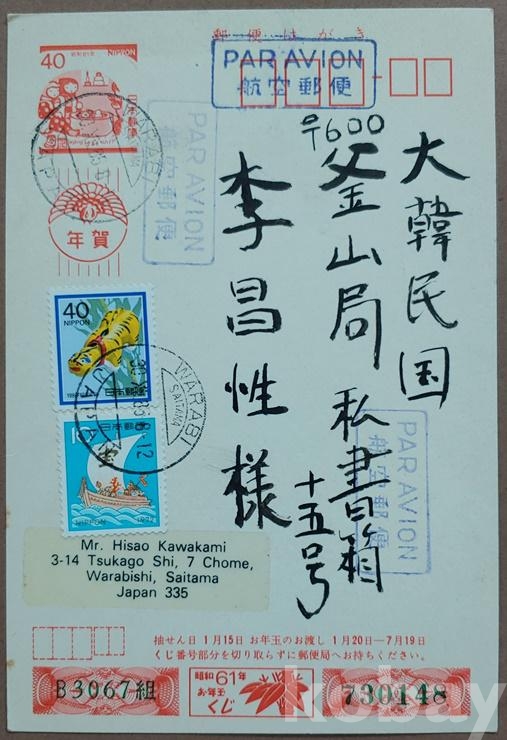 郵便はがき
40
昭和61年
NIPPON
日本郵便
PAR AVION
航空郵便
PAR AVION
航空郵便
WARABI
年賀
우600
大韓民国
釜山局 私書箱
十五号
李昌性様
40
NIPPON
日本郵便
WARABI
SAITAMA
8-12
NIPPON
PAR AVION
航空郵便
Mr. Hisao Kawakami
3-14 Tsukago Shi, 7 Chome,
Warabishi, Saitama
Japan 335
抽せん日 1月15日 お年玉のお渡し 1月20日―7月19日
くじ番号部分を切り取らずに郵便局へお持ちください。
B3067組
昭和61年
お年玉
くじ
730148
kobay